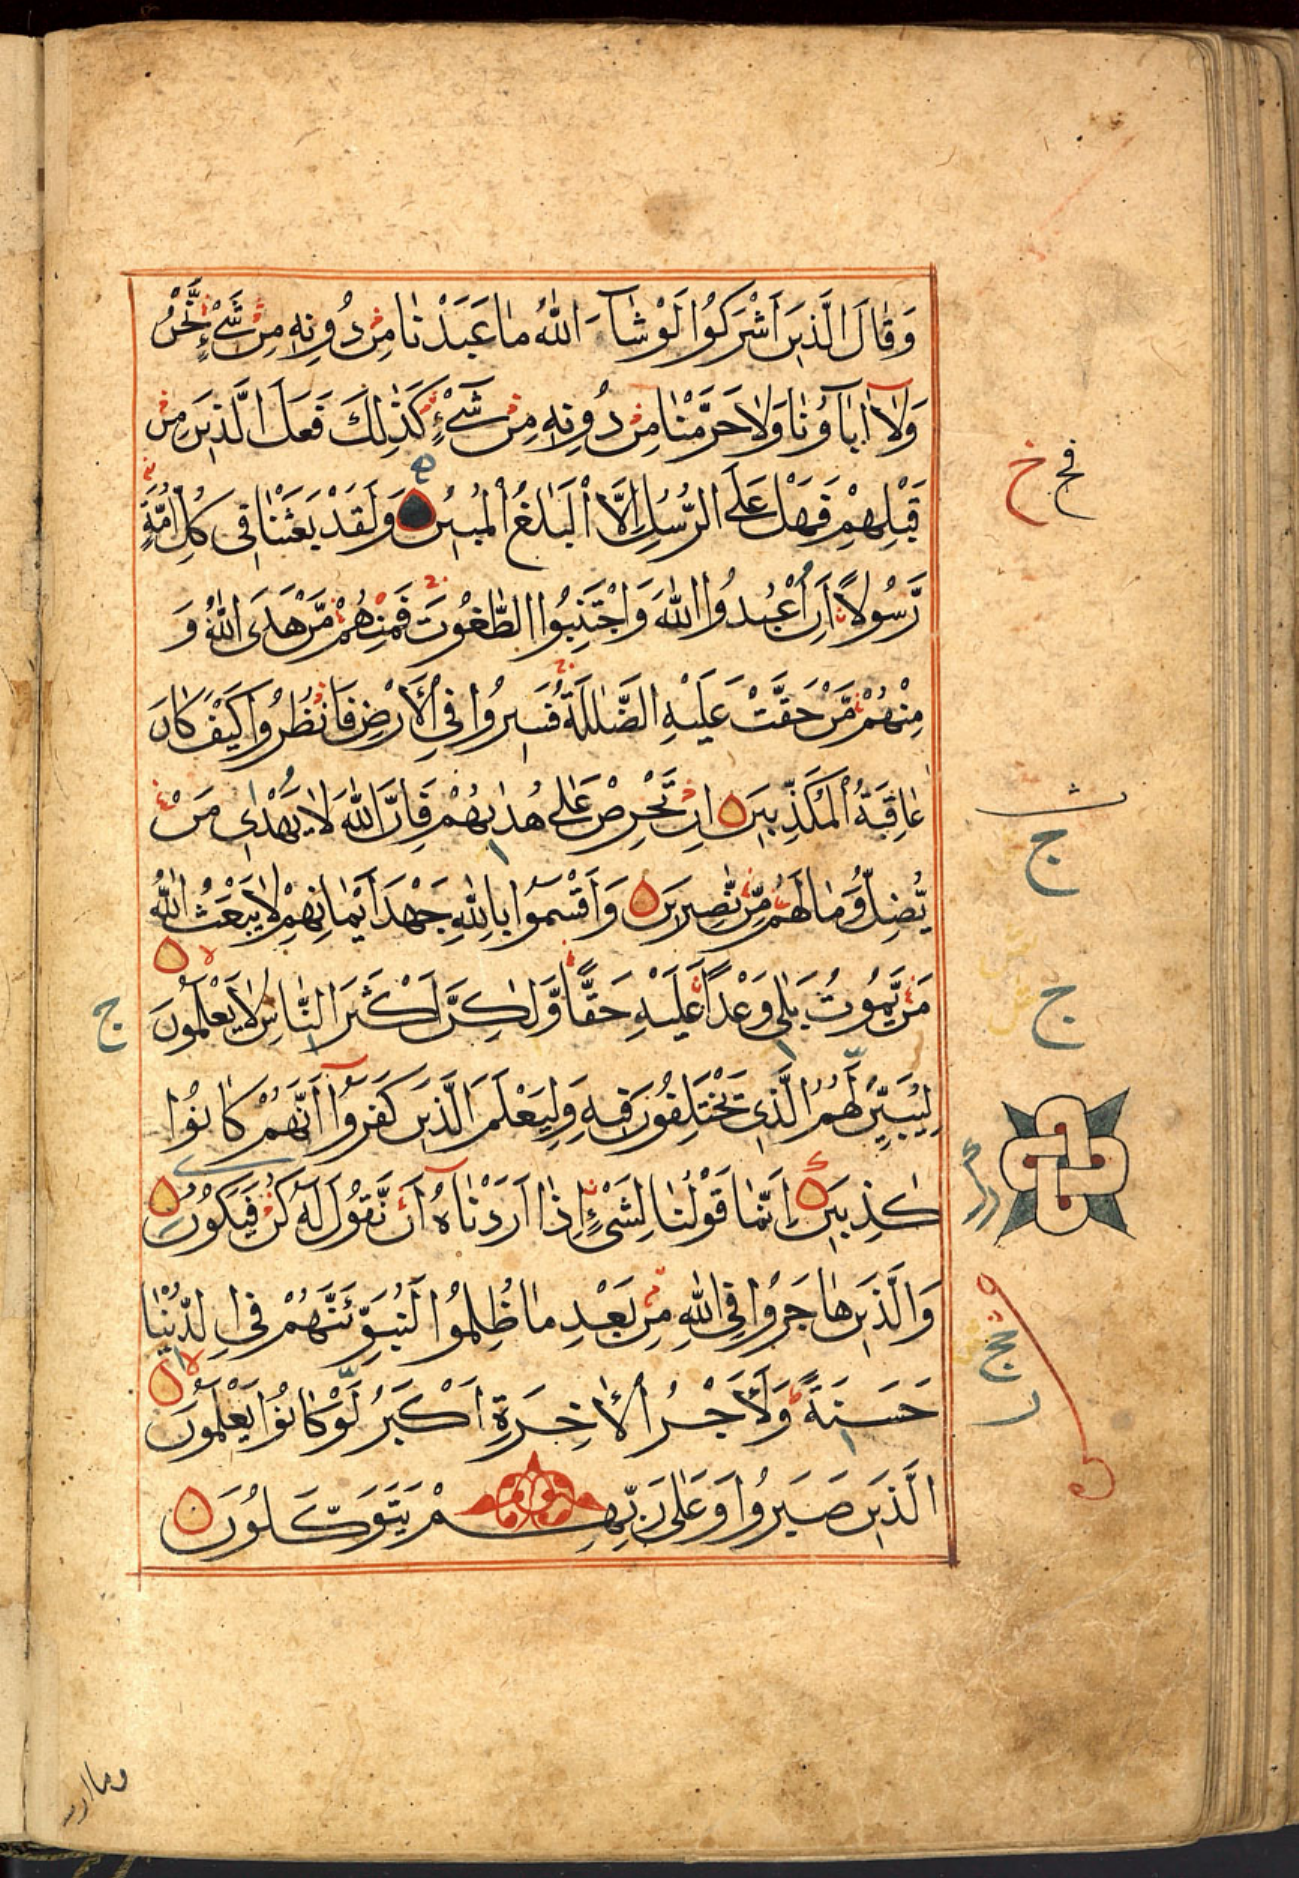 وَقَالَ الَّذِينَ اَشْرَكُوا لَوْ شَآءَ اللّٰهُ مَا عَبَدْنَا مِنْ دُونِهِ مِنْ شَىْءٍ نَّحْنُ
وَلَآ اٰبَآؤُنَا وَلَا حَرَّمْنَا مِنْ دُونِهِ مِنْ شَىْءٍ كَذٰلِكَ فَعَلَ الَّذِينَ مِنْ
قَبْلِهِمْ فَهَلْ عَلَى الرُّسُلِ اِلَّا الْبَلٰغُ الْمُبِينُ وَلَقَدْ بَعَثْنَا فِى كُلِّ اُمَّةٍ
رَّسُولًا اَنِ اعْبُدُوا اللّٰهَ وَاجْتَنِبُوا الطّٰغُوتَ فَمِنْهُمْ مَّنْ هَدَى اللّٰهُ وَ
مِنْهُمْ مَّنْ حَقَّتْ عَلَيْهِ الضَّلٰلَةُ فَسِيرُوا فِى الْاَرْضِ فَانْظُرُوا كَيْفَ كَانَ
عَاقِبَةُ الْمُكَذِّبِينَ اِنْ تَحْرِصْ عَلٰى هُدٰىهُمْ فَاِنَّ اللّٰهَ لَا يَهْدِى مَنْ
يُضِلُّ وَمَا لَهُمْ مِّنْ نّٰصِرِينَ وَاَقْسَمُوا بِاللّٰهِ جَهْدَ اَيْمَانِهِمْ لَا يَبْعَثُ اللّٰهُ
مَنْ يَّمُوتُ بَلٰى وَعْدًا عَلَيْهِ حَقًّا وَّلٰكِنَّ اَكْثَرَ النَّاسِ لَا يَعْلَمُونَ
لِيُبَيِّنَ لَهُمُ الَّذِى يَخْتَلِفُونَ فِيهِ وَلِيَعْلَمَ الَّذِينَ كَفَرُوآ اَنَّهُمْ كَانُوا
كٰذِبِينَ اِنَّمَا قَوْلُنَا لِشَىْءٍ اِذَا اَرَدْنَاهُ اَنْ نَّقُولَ لَهُ كُنْ فَيَكُونُ
وَالَّذِينَ هَاجَرُوا فِى اللّٰهِ مِنْ بَعْدِ مَا ظُلِمُوا لَنُبَوِّئَنَّهُمْ فِى الدُّنْيَا
حَسَنَةً وَلَاَجْرُ الْاٰخِرَةِ اَكْبَرُ لَوْ كَانُوا يَعْلَمُونَ
الَّذِينَ صَبَرُوا وَعَلٰى رَبِّهِمْ يَتَوَكَّلُونَ
وما ارسـ